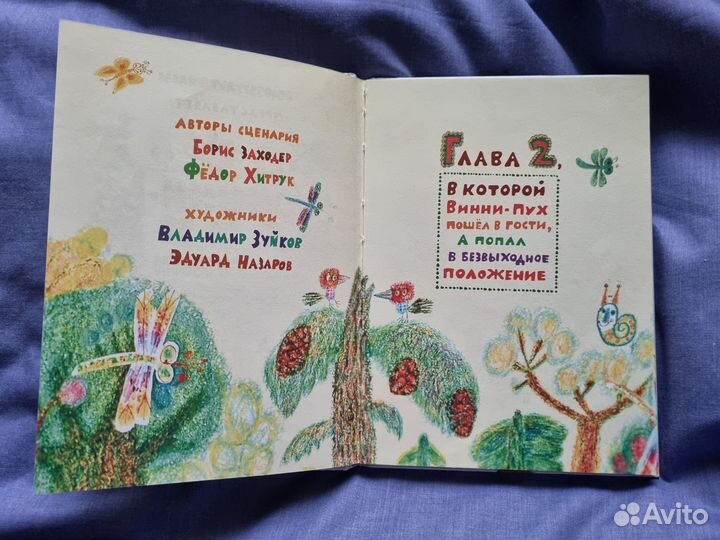 АВТОРЫ СЦЕНАРИЯ
БОРИС ЗАХОДЕР
ФЁДОР ХИТРУК
ХУДОЖНИКИ
ВЛАДИМИР ЗУЙКОВ
ЭДУАРД НАЗАРОВ
ГЛАВА 2,
В КОТОРОЙ
ВИННИ-ПУХ
ПОШЁЛ В ГОСТИ,
А ПОПАЛ
В БЕЗВЫХОДНОЕ
ПОЛОЖЕНИЕ
Avito